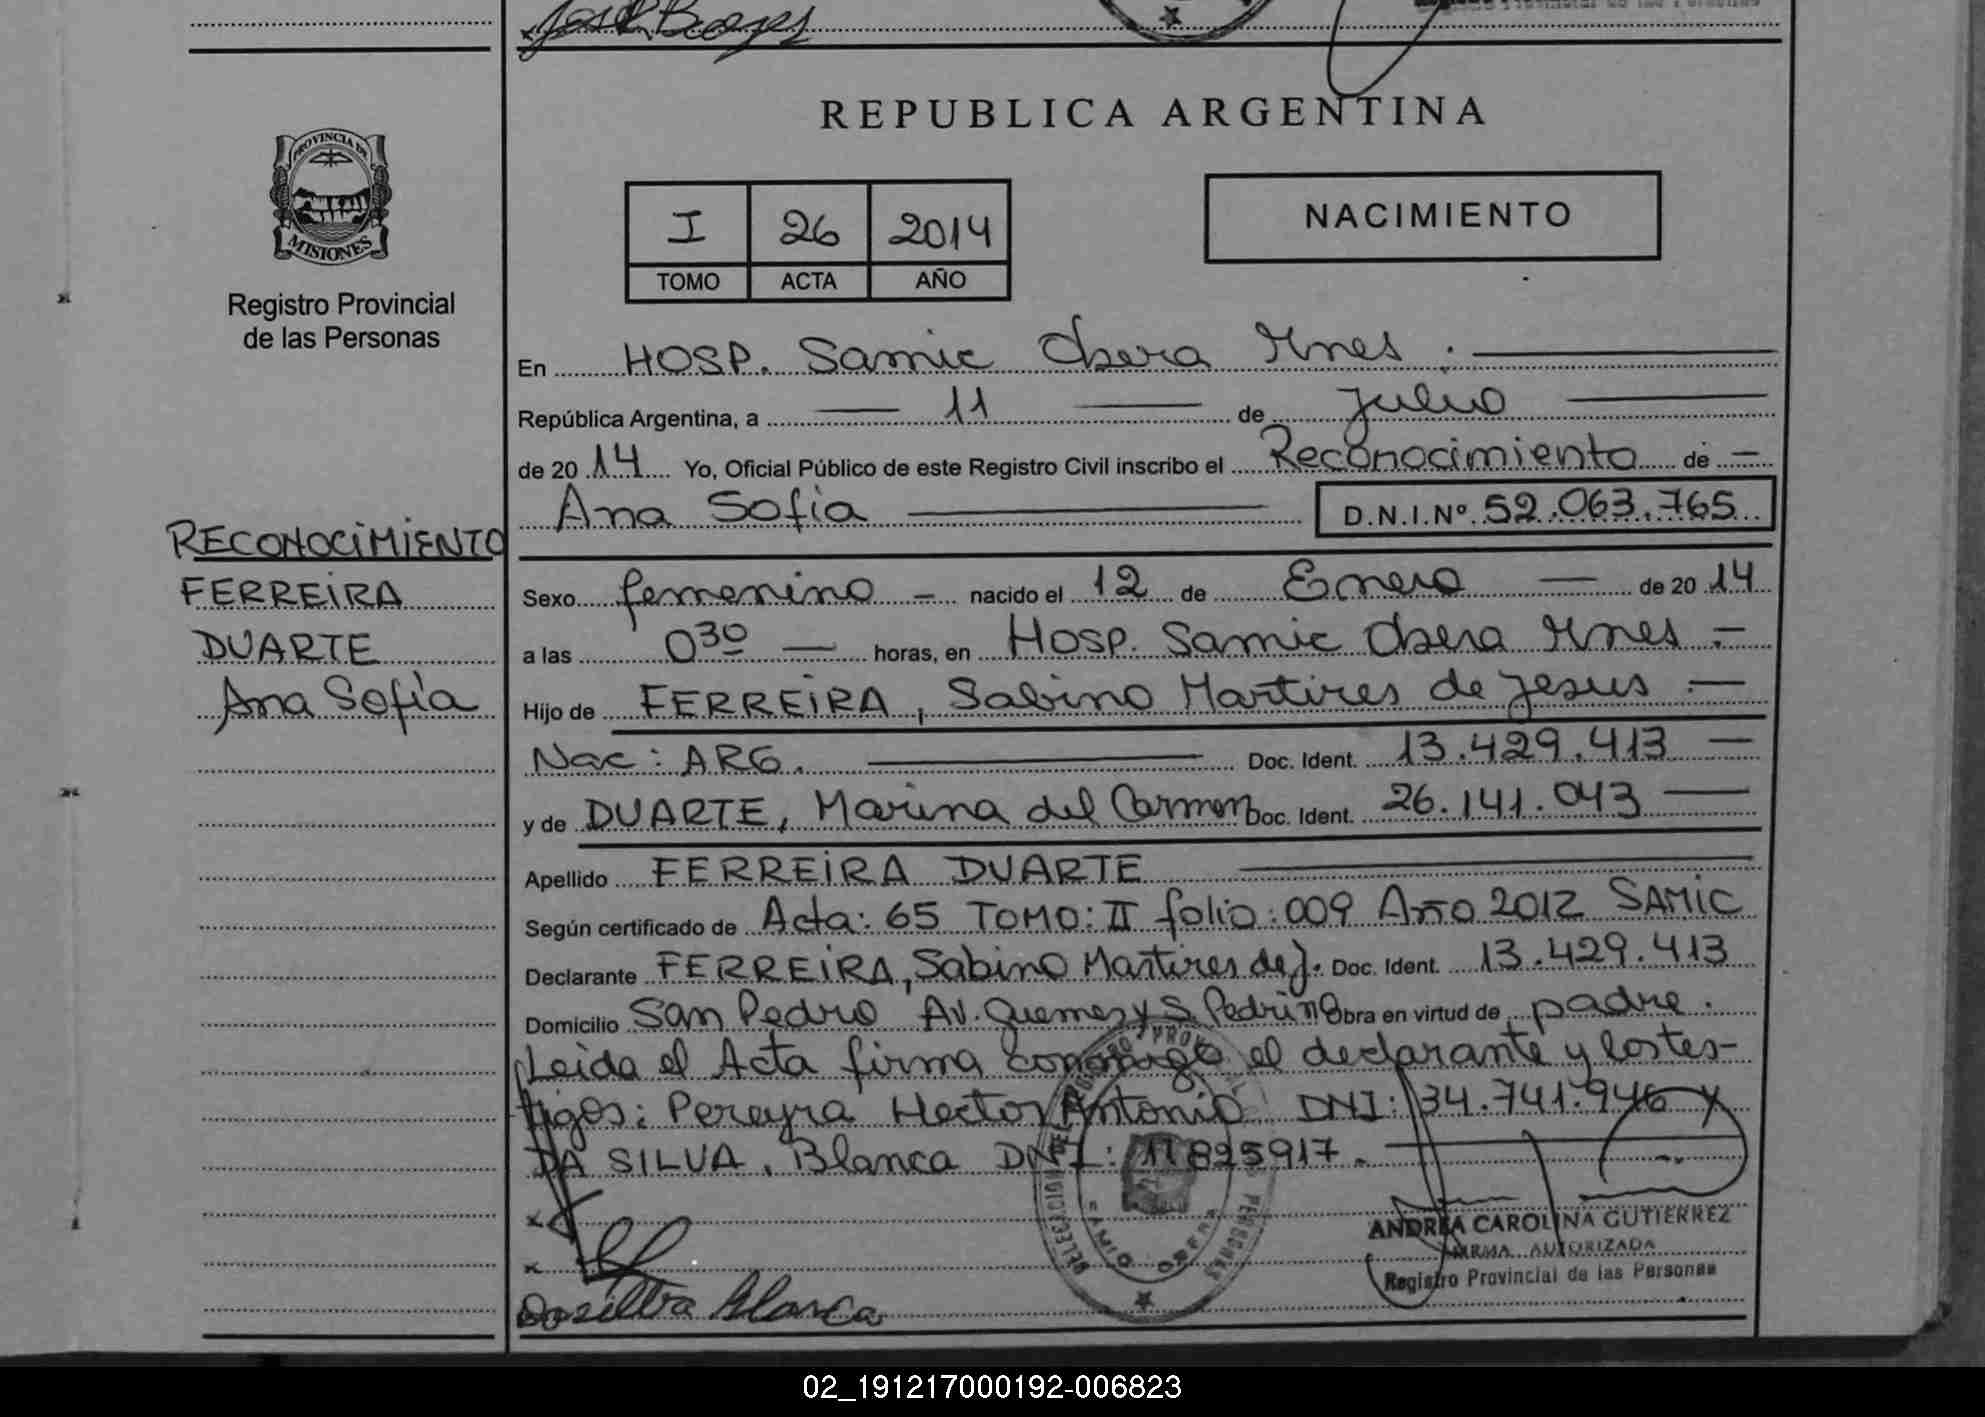 José R. Borges
REPUBLICA ARGENTINA
PROVINCIA DE
MISIONES
Registro Provincial
de las Personas
I 26 2014
TOMO ACTA AÑO
NACIMIENTO
En HOSP. Samic Obera Mnes. —
República Argentina, a — 11 — de Julio —
de 20 14 Yo, Oficial Público de este Registro Civil inscribo el Reconocimiento de —
Ana Sofia — D.N.I.Nº 52.063.765
RECONOCIMIENTO
FERREIRA
DUARTE
Ana Sofía
Sexo femenino — nacido el 12 de Enero — de 20 14
a las 0 30 — horas, en Hosp. Samic Obera Mnes. —
Hijo de FERREIRA, Sabino Martires de Jesus. —
Nac: ARG. — Doc. Ident. 13.429.413 —
y de DUARTE, Marina del Carmen Doc. Ident. 26.141.043 —
Apellido FERREIRA DUARTE —
Según certificado de Acta: 65 TOMO: II folio: 009 Año 2012 SAMIC
Declarante FERREIRA, Sabino Martires de J. Doc. Ident. 13.429.413
Domicilio San Pedro Av. Guemes y S. Pedrino Obra en virtud de padre.
Leida el Acta firma conmigo el declarante y los tes-
tigos: Pereyra Hector Antonio DNI: 34.741.946 y
DA SILVA, Blanca DNI: 11895917. —
x
x
Dasilva Blanca
ANDREA CAROLINA GUTIERREZ
FIRMA AUTORIZADA
Registro Provincial de las Personas
02_191217000192-006823